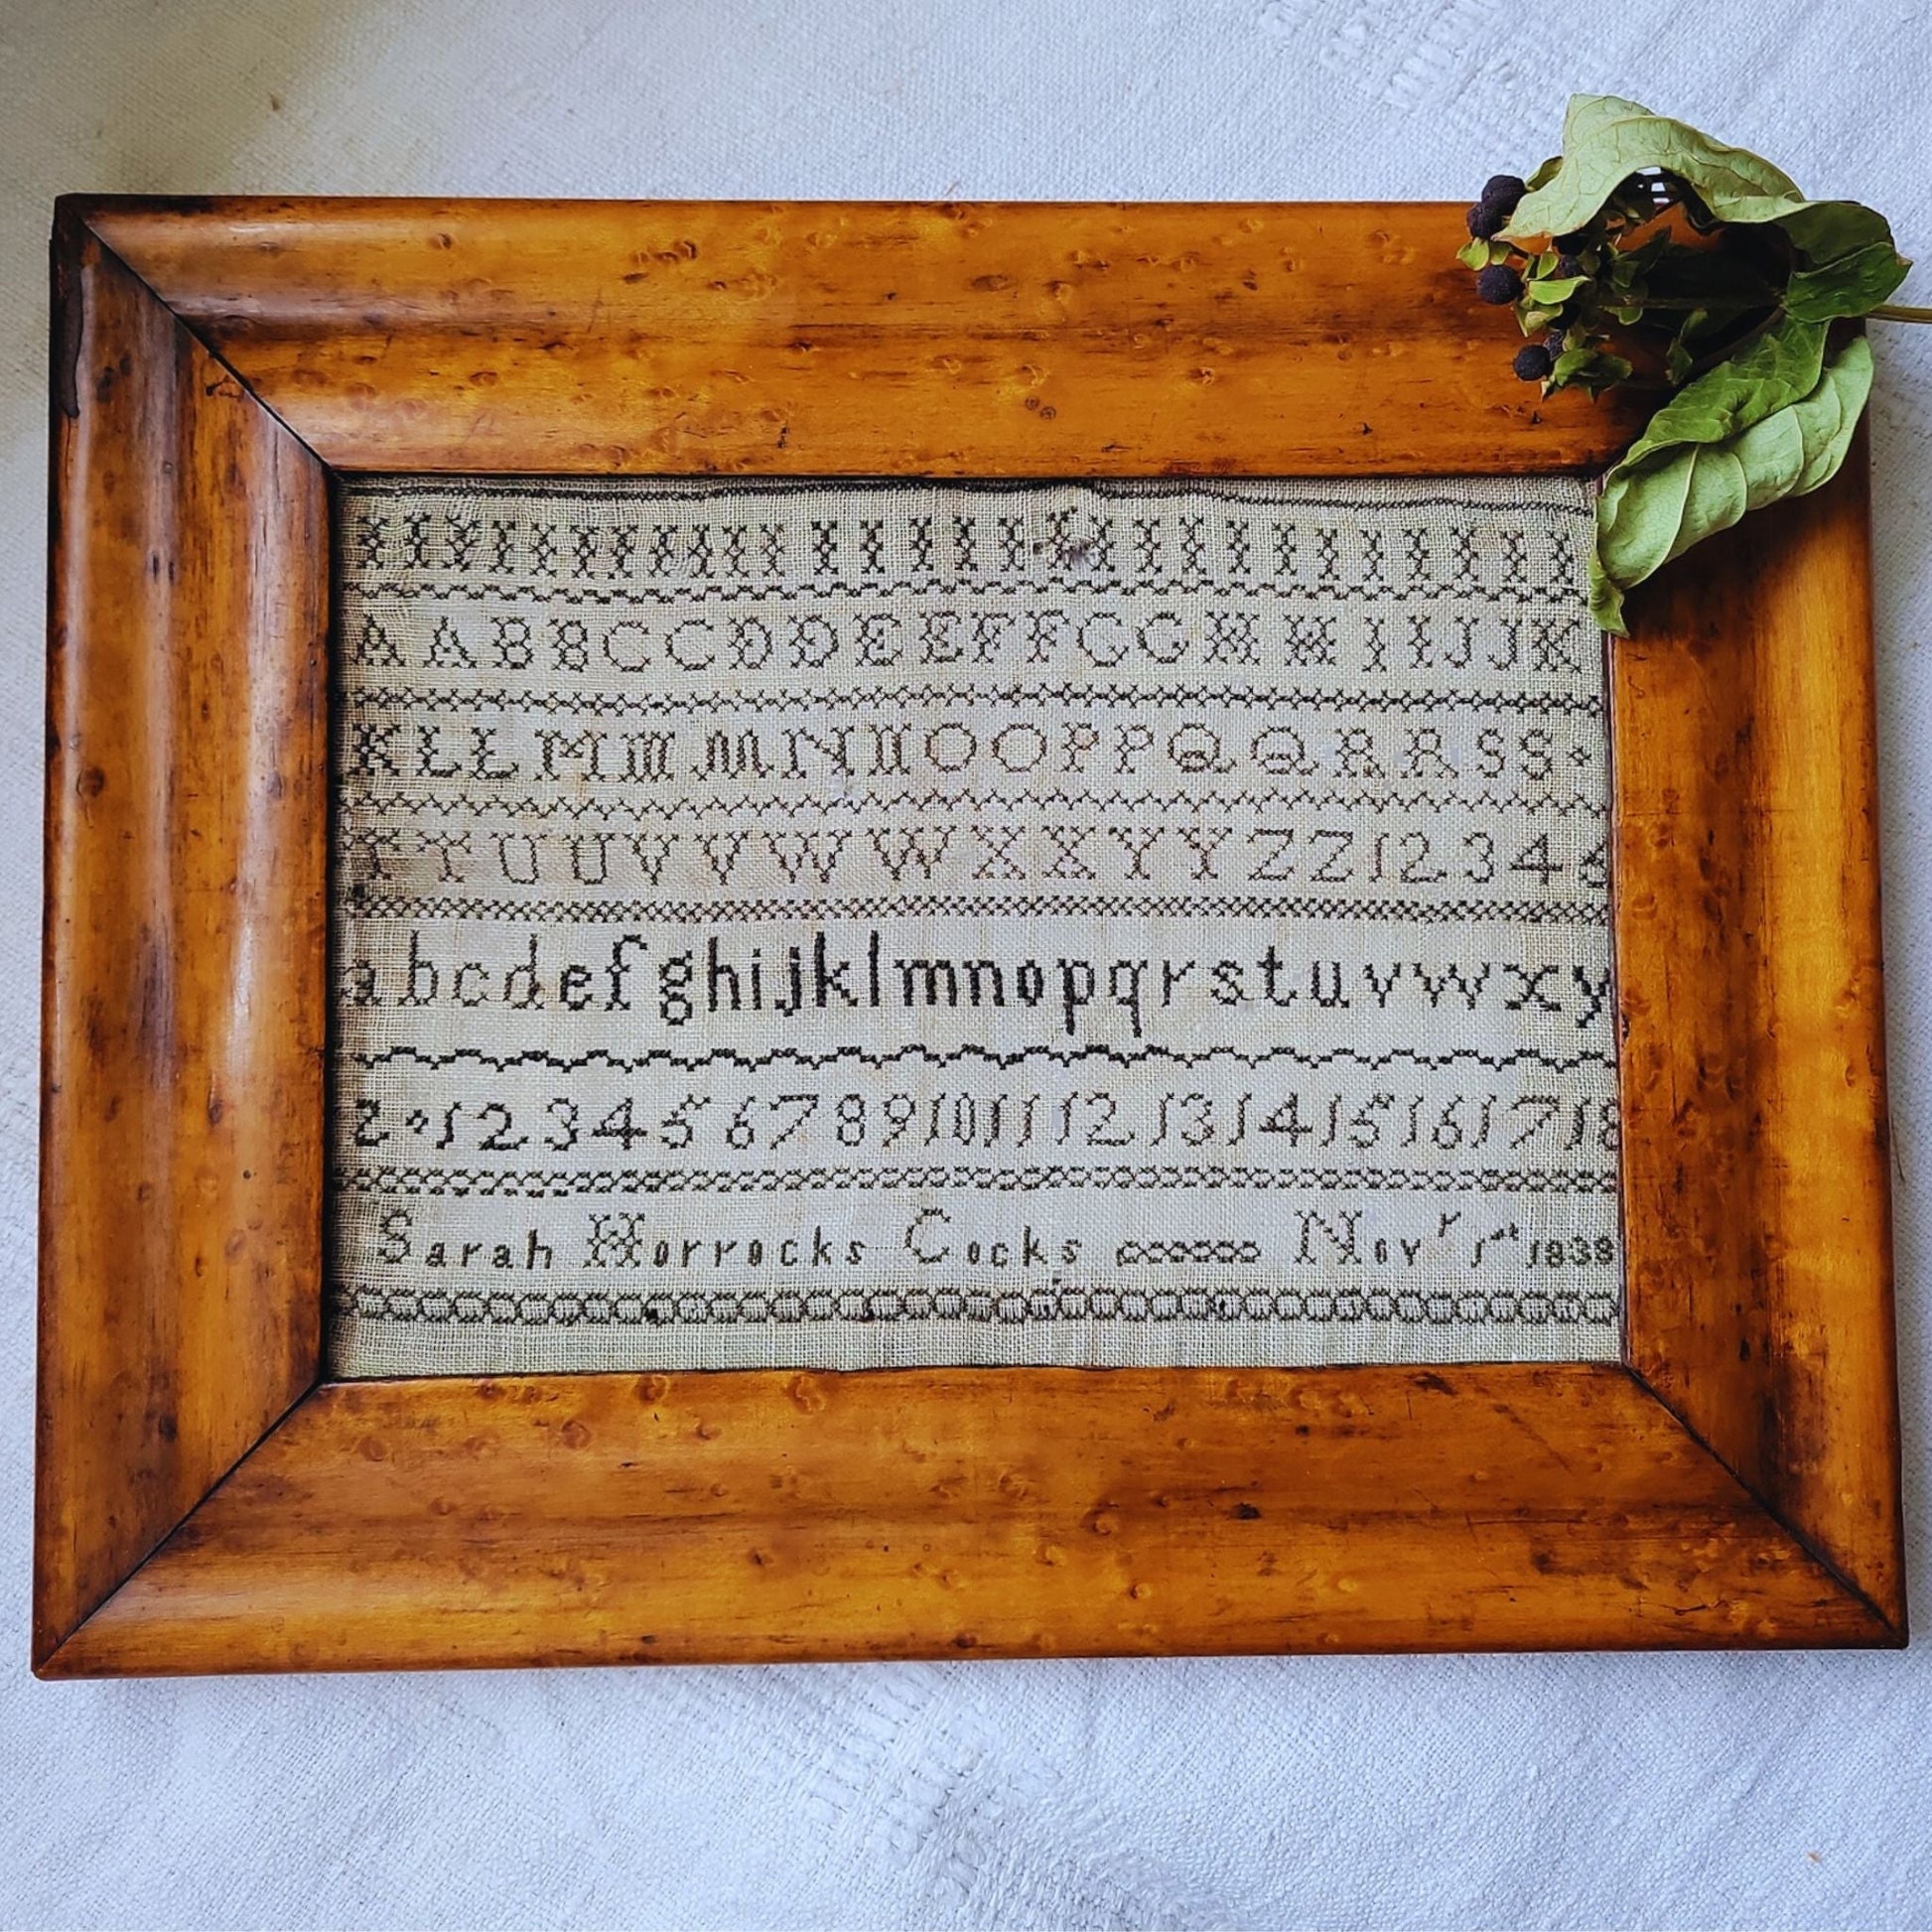 A A B B C C D D E E F F G G H H I I J J K
K L L M M M N N O O P P Q Q R R S S ·
T T U U V V W W X X Y Y Z Z 1 2 3 4 6
a b c d e f g h i j k l m n o p q r s t u v w x y
z · 1 2 3 4 5 6 7 8 9 10 11 12 13 14 15 16 17 18
Sarah Horrocks Cocks Nov^r 1^st 1838